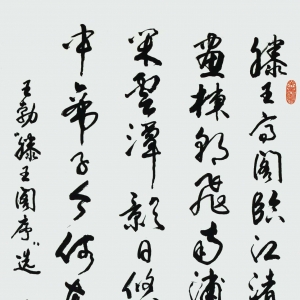 滕王高阁临江渚
画栋朝飞南浦
闲云潭影日悠
中帝子今何在
王勃“滕王阁序”选